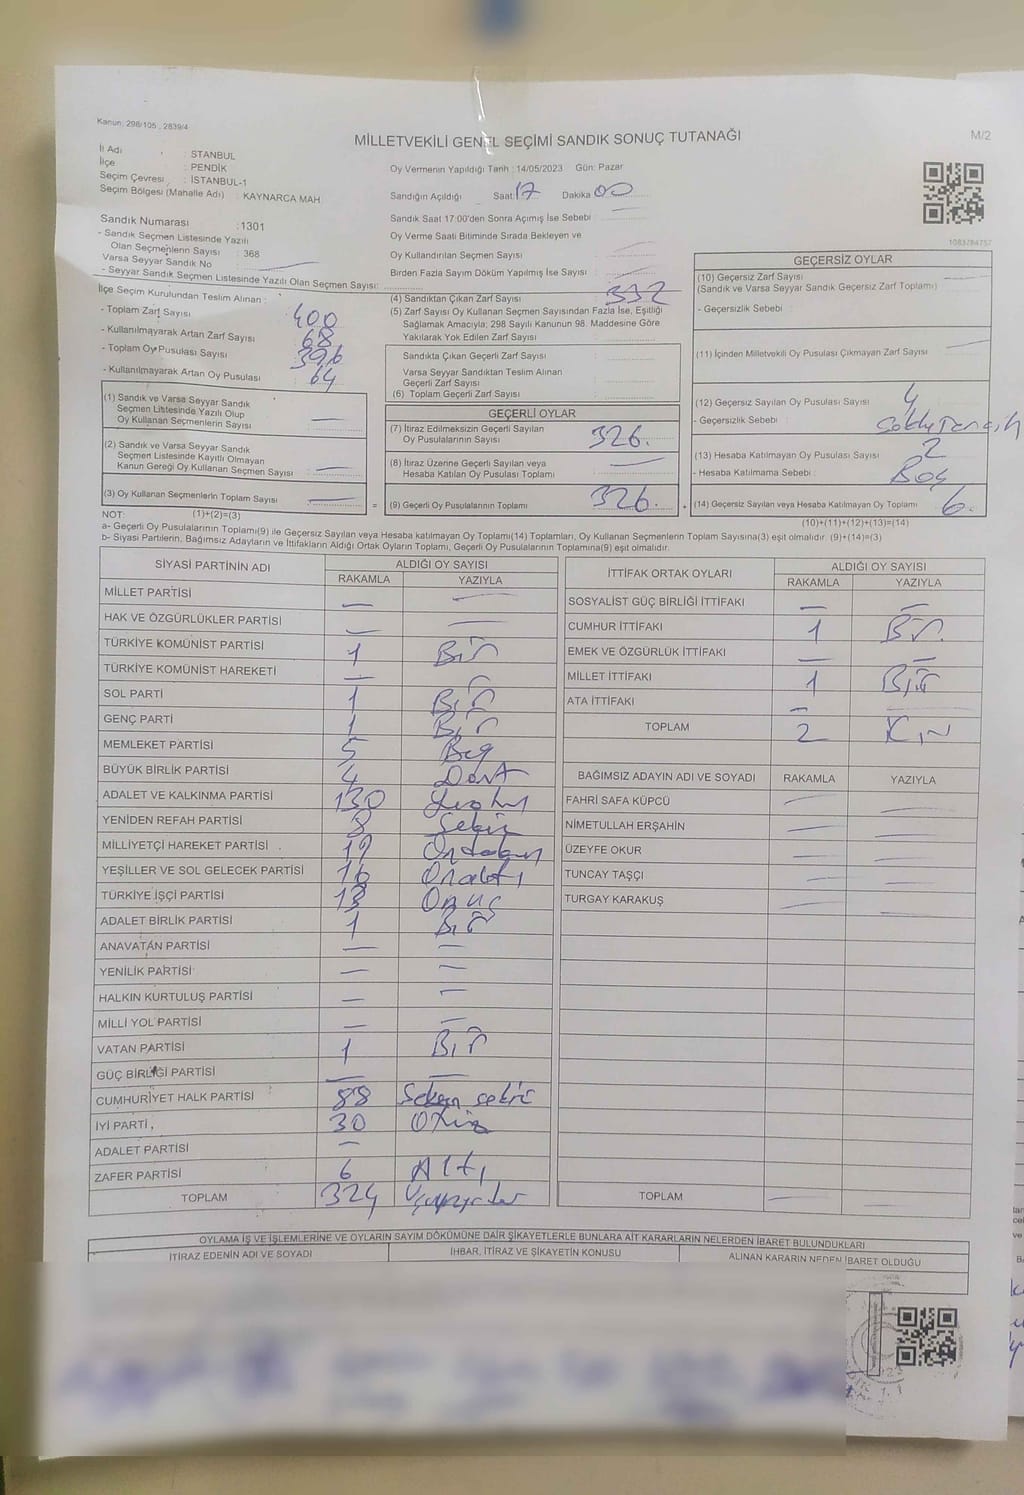 Kanun: 298/105 , 2839/4
MİLLETVEKİLİ GENEL SEÇİMİ SANDIK SONUÇ TUTANAĞI
M/2
İl Adı : STANBUL
İlçe : PENDİK
Seçim Çevresi : İSTANBUL-1
Seçim Bölgesi (Mahalle Adı) : KAYNARCA MAH
Sandık Numarası : 1301
- Sandık Seçmen Listesinde Yazılı
Olan Seçmenlerin Sayısı : 368
Varsa Seyyar Sandık No
- Seyyar Sandık Seçmen Listesinde Yazılı Olan Seçmen Sayısı:
Oy Vermenin Yapıldığı Tarih : 14/05/2023 Gün: Pazar
Sandığın Açıldığı Saat 17 Dakika 00
Sandık Saat 17:00'den Sonra Açımış İse Sebebi
Oy Verme Saati Bitiminde Sırada Bekleyen ve
Oy Kullandırılan Seçmen Sayısı
Birden Fazla Sayım Döküm Yapılmış İse Sayısı
1083784757
İlçe Seçim Kurulundan Teslim Alınan :
- Toplam Zarf Sayısı 400
- Kullanılmayarak Artan Zarf Sayısı 68
- Toplam Oy Pusulası Sayısı 396
- Kullanılmayarak Artan Oy Pusulası 64
(1) Sandık ve Varsa Seyyar Sandık
Seçmen Listesinde Yazılı Olup
Oy Kullanan Seçmenlerin Sayısı
(2) Sandık ve Varsa Seyyar Sandık
Seçmen Listesinde Kayıtlı Olmayan
Kanun Gereği Oy Kullanan Seçmen Sayısı
(3) Oy Kullanan Seçmenlerin Toplam Sayısı =
(4) Sandıktan Çıkan Zarf Sayısı 332
(5) Zarf Sayısı Oy Kullanan Seçmen Sayısından Fazla İse, Eşitliği
Sağlamak Amacıyla; 298 Sayılı Kanunun 98. Maddesine Göre
Yakılarak Yok Edilen Zarf Sayısı
Sandıkta Çıkan Geçerli Zarf Sayısı
Varsa Seyyar Sandıktan Teslim Alınan
Geçerli Zarf Sayısı
(6) Toplam Geçerli Zarf Sayısı
GEÇERLİ OYLAR
(7) İtiraz Edilmeksizin Geçerli Sayılan
Oy Pusulalarının Sayısı 326.
(8) İtiraz Üzerine Geçerli Sayılan veya
Hesaba Katılan Oy Pusulası Toplamı
(9) Geçerli Oy Pusulalarının Toplamı 326.
GEÇERSİZ OYLAR
(10) Geçersiz Zarf Sayısı
(Sandık ve Varsa Seyyar Sandık Geçersiz Zarf Toplamı)
- Geçersizlik Sebebi :
(11) İçinden Milletvekili Oy Pusulası Çıkmayan Zarf Sayısı
(12) Geçersiz Sayılan Oy Pusulası Sayısı 4
- Geçersizlik Sebebi :
(13) Hesaba Katılmayan Oy Pusulası Sayısı 2
- Hesaba Katılmama Sebebi : Boş
(14) Geçersiz Sayılan veya Hesaba Katılmayan Oy Toplamı 6.
NOT: (1)+(2)=(3)
(10)+(11)+(12)+(13)=(14)
a- Geçerli Oy Pusulalarının Toplamı(9) ile Geçersiz Sayılan veya Hesaba katılmayan Oy Toplamı(14) Toplamları, Oy Kullanan Seçmenlerin Toplam Sayısına(3) eşit olmalıdır. (9)+(14)=(3)
b- Siyasi Partilerin, Bağımsız Adayların ve İttifakların Aldığı Ortak Oyların Toplamı, Geçerli Oy Pusulalarının Toplamına(9) eşit olmalıdır.
SİYASİ PARTİNİN ADI ALDIĞI OY SAYISI
RAKAMLA YAZIYLA
MİLLET PARTİSİ — —
HAK VE ÖZGÜRLÜKLER PARTİSİ — —
TÜRKİYE KOMÜNİST PARTİSİ 1 Bir
TÜRKİYE KOMÜNİST HAREKETİ — —
SOL PARTİ 1 Bir
GENÇ PARTİ 1 Bir
MEMLEKET PARTİSİ 5 Beş
BÜYÜK BİRLİK PARTİSİ 4 Dört
ADALET VE KALKINMA PARTİSİ 130
YENİDEN REFAH PARTİSİ 8 Sekiz
MİLLİYETÇİ HAREKET PARTİSİ 19
YEŞİLLER VE SOL GELECEK PARTİSİ 16 Onaltı
TÜRKİYE İŞÇİ PARTİSİ 13 Onüç
ADALET BİRLİK PARTİSİ 1 Bir
ANAVATAN PARTİSİ — —
YENİLİK PARTİSİ — —
HALKIN KURTULUŞ PARTİSİ — —
MİLLİ YOL PARTİSİ — —
VATAN PARTİSİ 1 Bir
GÜÇ BİRLİĞİ PARTİSİ — —
CUMHURİYET HALK PARTİSİ 88 Seksen sekiz
İYİ PARTİ 30 Otuz
ADALET PARTİSİ —
ZAFER PARTİSİ 6 Altı
TOPLAM 324
İTTİFAK ORTAK OYLARI ALDIĞI OY SAYISI
RAKAMLA YAZIYLA
SOSYALİST GÜÇ BİRLİĞİ İTTİFAKI — —
CUMHUR İTTİFAKI 1 Bir.
EMEK VE ÖZGÜRLÜK İTTİFAKI — —
MİLLET İTTİFAKI 1 Bir
ATA İTTİFAKI —
TOPLAM 2
BAĞIMSIZ ADAYIN ADI VE SOYADI RAKAMLA YAZIYLA
FAHRİ SAFA KÜPCÜ — —
NİMETULLAH ERŞAHİN — —
ÜZEYFE OKUR — —
TUNCAY TAŞÇI — —
TURGAY KARAKUŞ — —
TOPLAM — —
OYLAMA İŞ VE İŞLEMLERİNE VE OYLARIN SAYIM DÖKÜMÜNE DAİR ŞİKAYETLERLE BUNLARA AİT KARARLARIN NELERDEN İBARET BULUNDUKLARI
İTİRAZ EDENİN ADI VE SOYADI İHBAR, İTİRAZ VE ŞİKAYETİN KONUSU ALINAN KARARIN NEDEN İBARET OLDUĞU